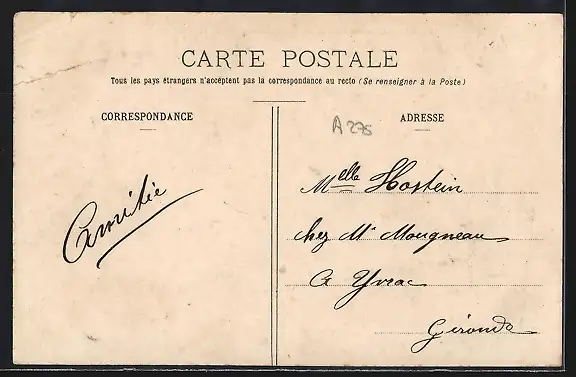 CARTE POSTALE
Tous les pays étrangers n'acceptent pas la correspondance au recto (Se renseigner à la Poste)
CORRESPONDANCE
ADRESSE
A 275
Amitié
Melle Hostein
chez Mr Mougneau
A Yvrac
Gironde